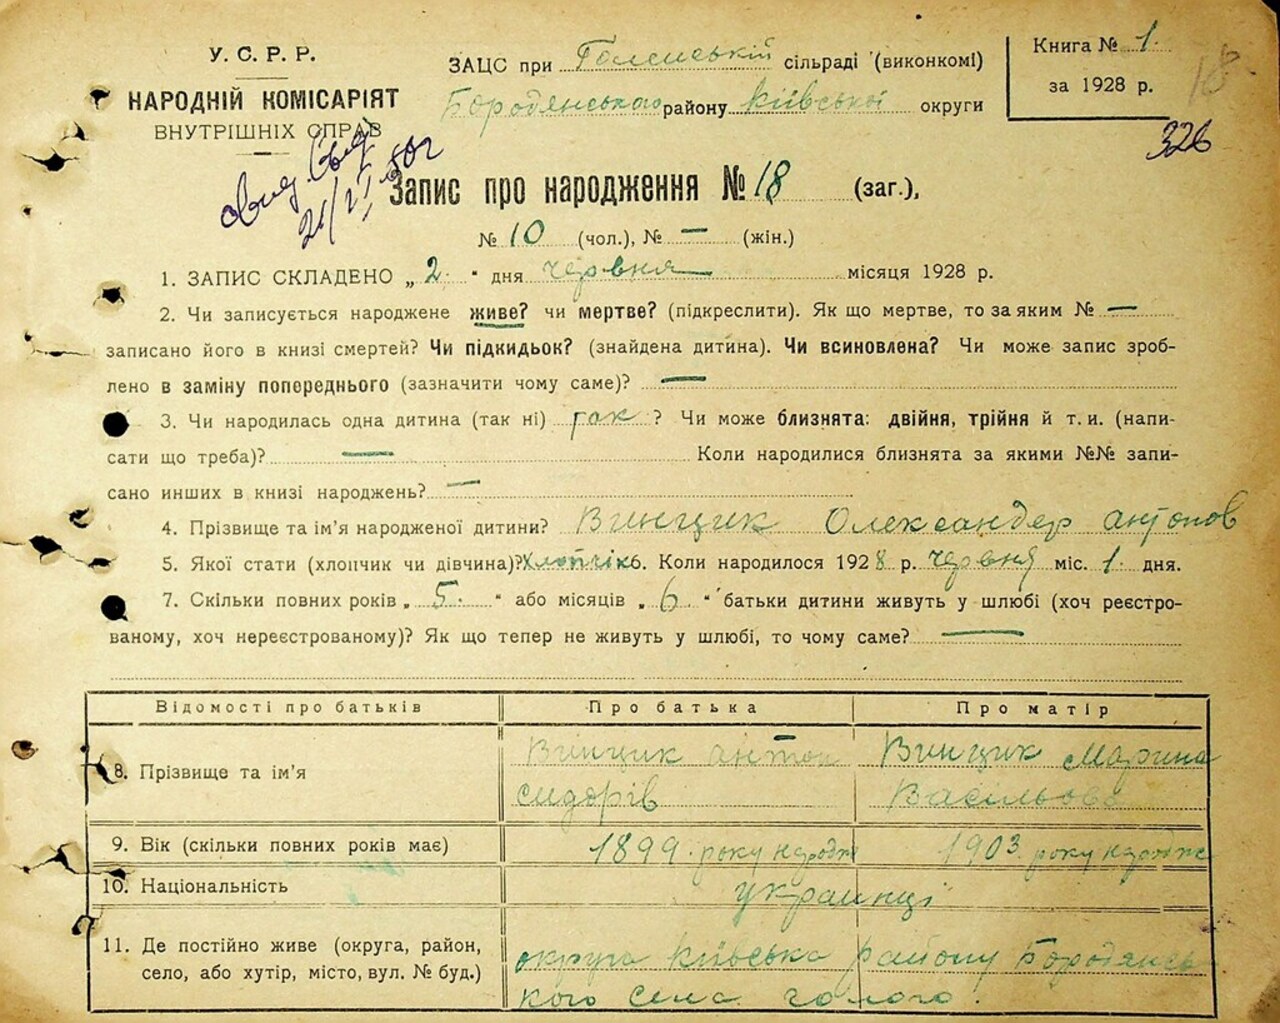 У. С. Р. Р.
НАРОДНІЙ КОМІСАРІЯТ
ВНУТРІШНІХ СПРАВ
ЗАЦС при сільраді (виконкомі)
Бородянського району Київської округи
Книга № 1.
за 1928 р.
18
326
Запис про народження № 18 (заг.),
№ 10 (чол.), № — (жін.)
1. ЗАПИС СКЛАДЕНО „ 2. “ дня червня місяця 1928 р.
2. Чи записується народжене живе? чи мертве? (підкреслити). Як що мертве, то за яким № —
записано його в книзі смертей? Чи підкидьок? (знайдена дитина). Чи всиновлена? Чи може запис зроб-
лено в заміну попереднього (зазначити чому саме)? —
3. Чи народилась одна дитина (так ні) так ? Чи може близнята: двійня, трійня й т. и. (напи-
сати що треба)? — Коли народилися близнята за якими №№ запи-
сано инших в книзі народжень? —
4. Прізвище та ім’я народженої дитини? Винцик Олександер антонов
5. Якої стати (хлопчик чи дівчина)? Хлопчік 6. Коли народилося 1928 р. червня міс. 1. дня.
7. Скільки повних років „ 5. “ або місяців „ 6 “ батьки дитини живуть у шлюбі (хоч реєстро-
ваному, хоч нереєстрованому)? Як що тепер не живуть у шлюбі, то чому саме? —
Відомості про батьків Про батька Про матір
8. Прізвище та ім’я
Винцик антон
сидорів
Винцик Марина
Васільова
9. Вік (скільки повних років має) 1899. року народж 1903. року народж
10. Національність украинці
11. Де постійно живе (округа, район,
село, або хутір, місто, вул. № буд.)
округа Київська району Бородянсь
кого села